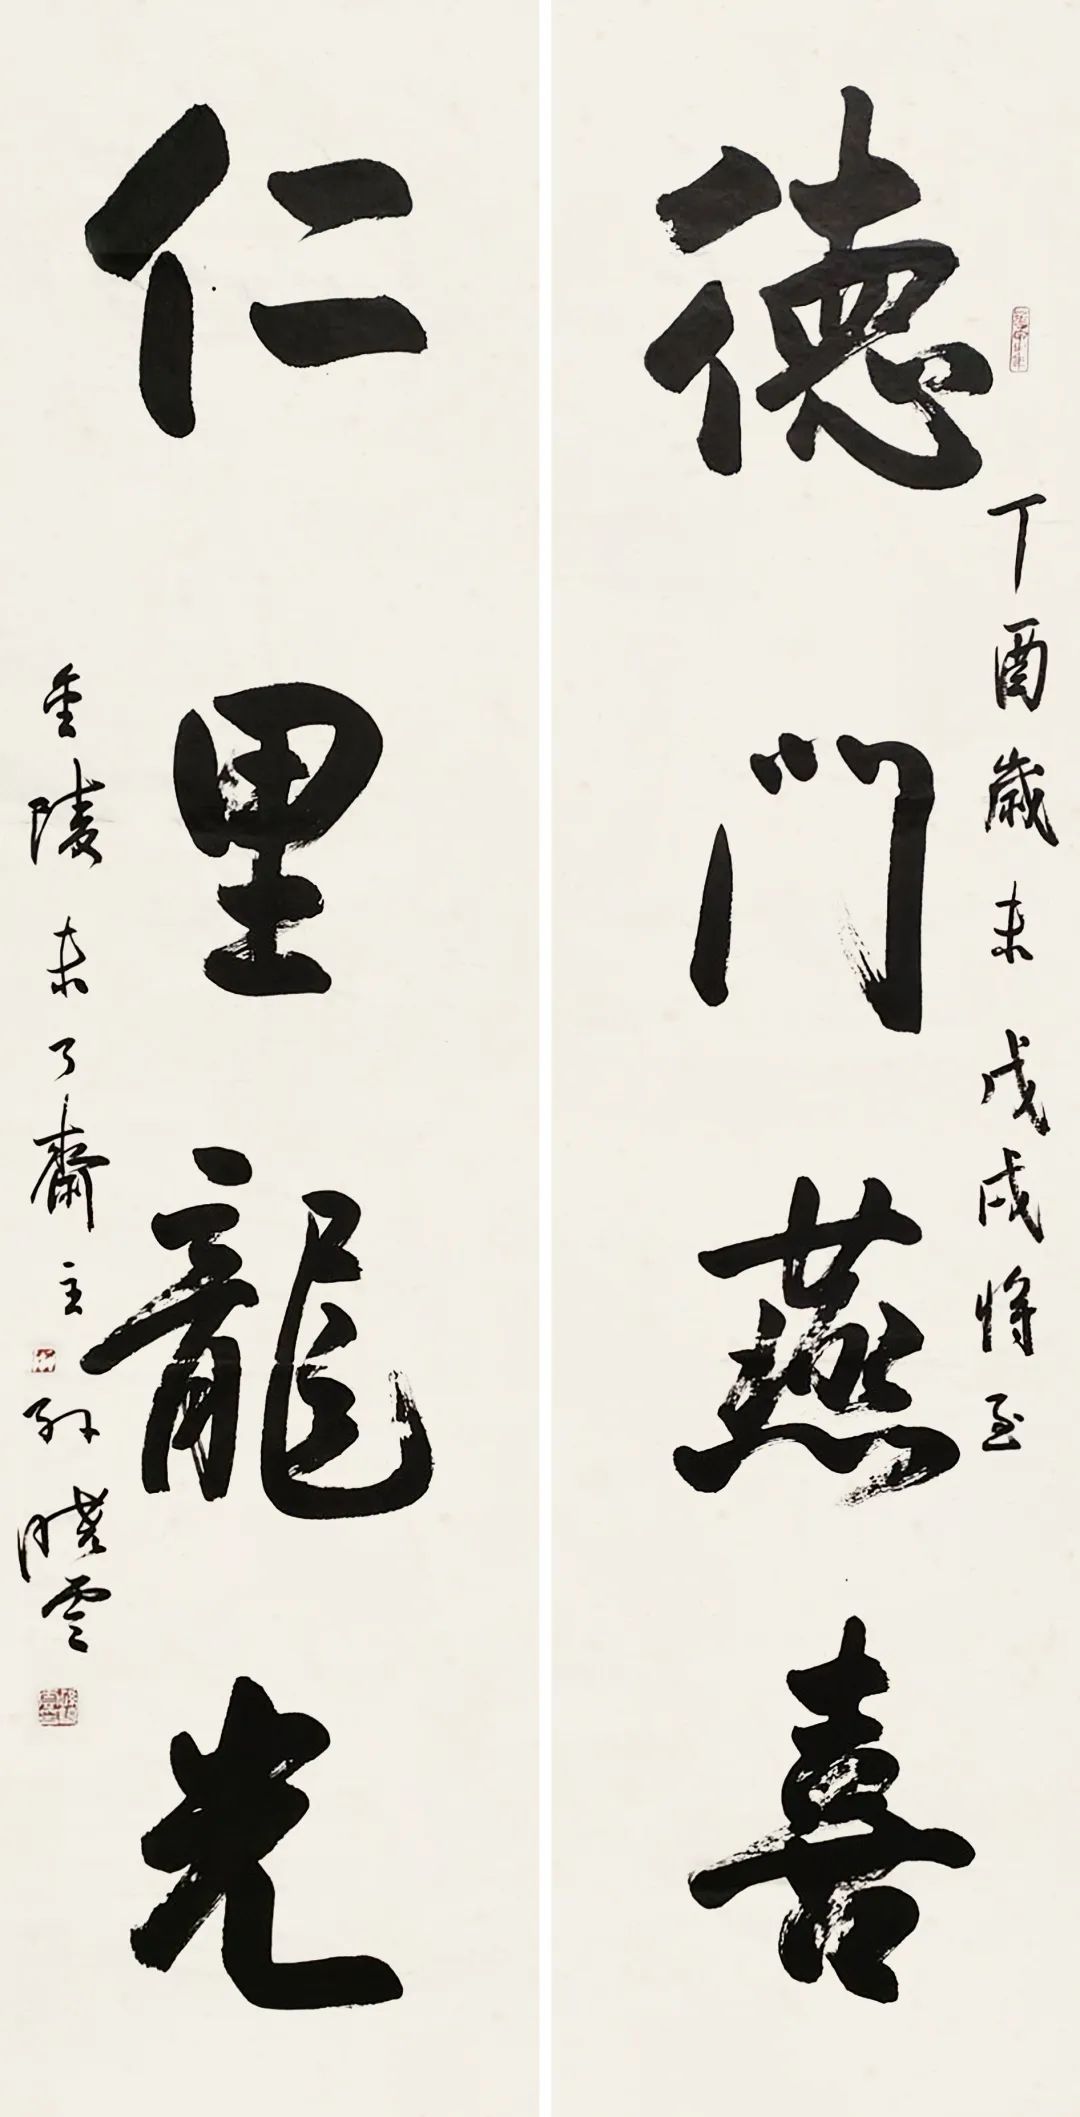 德門燕喜
丁酉歲末戊戌將至
仁里龍光
金陵未了齋主孫曉雲